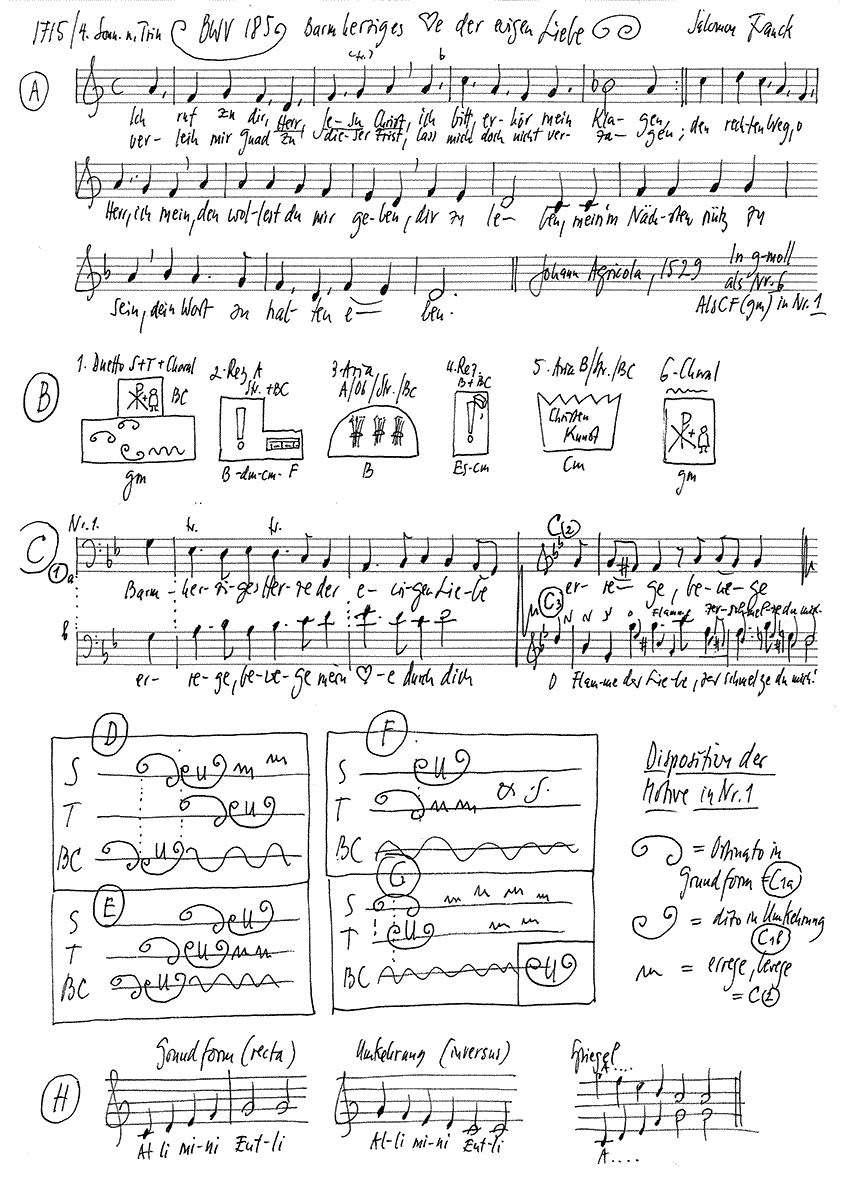 1715/4. Sonn. n. Trin BWV 185 Barmherziges ♡e der ewigen Liebe Salomon Franck
(tr.)
A
Ich ruf zu dir, Herr, Je-su Christ, ich bitt, er-hör mein Kla-gen,
ver-leih mir gnad zu die-ser Frist, lass mich doch nicht ver-za-gen; den rechten Weg, o
Herr, ich mein, den wol-lest du mir ge-ben, dir zu le-ben, mein'm Näch-sten nütz zu
sein, dein Wort zu hal-ten e-ben.
Johann Agricola, 1529
In g-moll
als Nr. 6
Als CF (gm) in Nr. 1
B
1. Duetto S+T+Choral
BC
gm
2. Rez. A
Str. +BC
B-dm-cm-F
3. Aria
A/Ob/Str./BC
B
4. Rez.
B+BC
Es-cm
5. Aria B/Str./BC
Christen
Kunst
Cm
6. Choral
gm
C
Nr. 1.
tr. tr.
C2
1a
Barm-her-zi-ges Her-ze der e-wi-gen Lie-be
er-re-ge, be-we-ge
C3
Flamme zer-schmel-ze du mein
b
er-re-ge, be-we-ge mein ♡-e durch dich
O Flam-me der Lie-be, zer schmelze du mich!
D
S
T
BC
F
S
T
BC
E
S
T
BC
G
S
T
BC
Disposition der
Motive in Nr. 1
= Ostinato in
Grundform = C1a
= dito in Umkehrung
C1b
= errege, bewege
= C2
H
Grundform (recta)
Al-li mi-ni Ent-li
Umkehrung (inversus)
Al-li mi-ni Ent-li
Spiegel
A....
A....